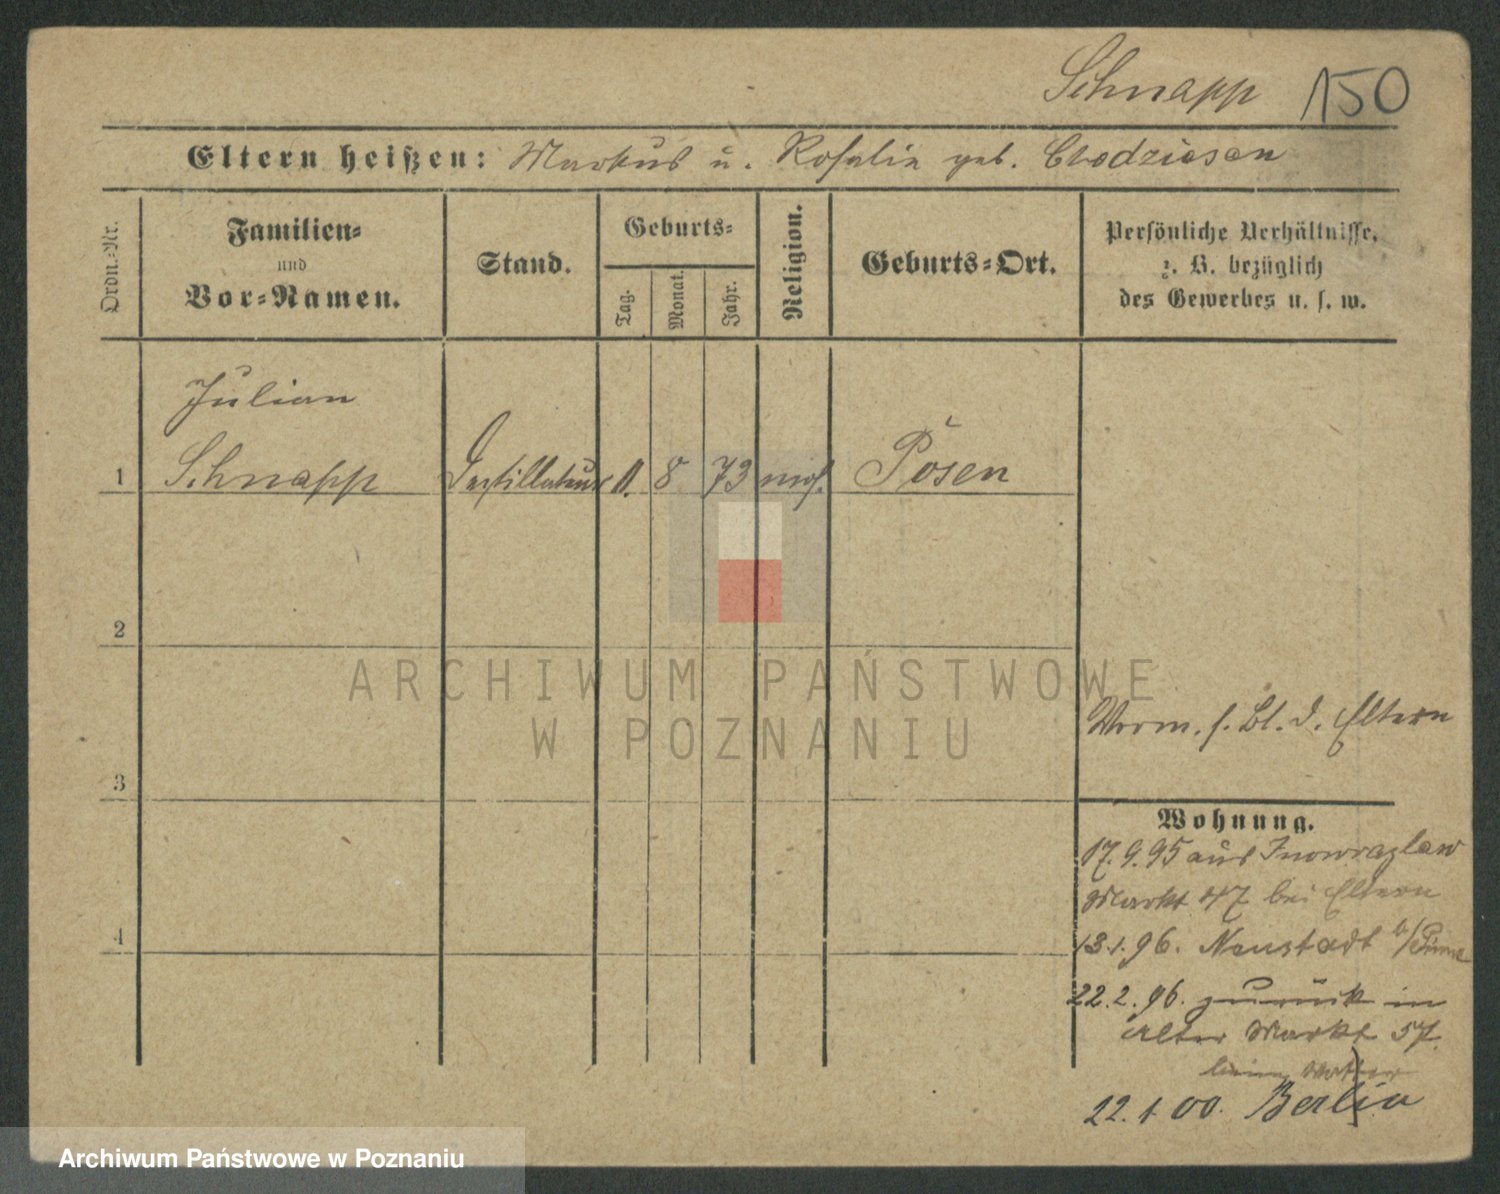 Schnapp 150
Eltern heißen: Markus u. Rosalie geb. Chodziesen
Ordn.-Nr.
Familien-
und
Vor-Namen.
Stand.
Geburts-
Tag.
Monat.
Jahr.
Religion.
Geburts-Ort.
Persönliche Verhältnisse,
z. B. bezüglich
des Gewerbes u. s. w.
Julian
1 Schnapp Destillateur 11. 8 73 mos. Posen
2
3
4
Verm. s. Bl. d. Eltern
Wohnung.
17.9.95 aus Inowrazlaw
Markt 47 bei Eltern
13.1.96. Neustadt b/Pinne
22.2.96. zurück in
Alter Markt 57.
beim Vater
22.1.00. Berlin
ARCHIWUM PAŃSTWOWE
W POZNANIU
Archiwum Państwowe w Poznaniu